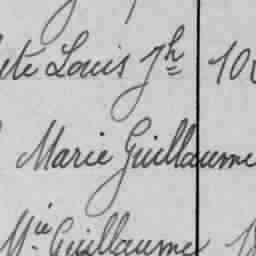 Louis Jh 10
Marie Guillaume
Mie Guillaume 1